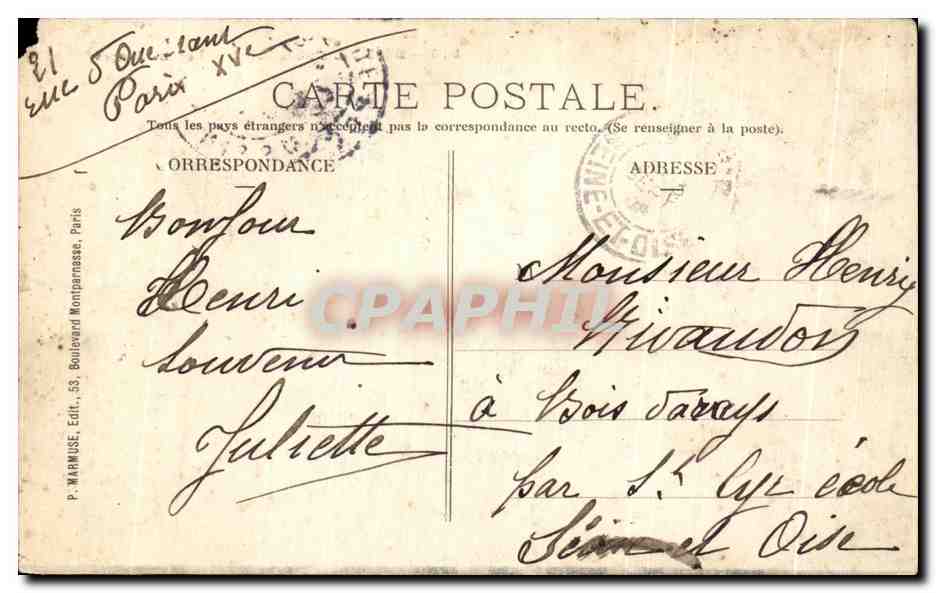 21
rue d'Ouessant
Paris XVe
CARTE POSTALE.
Tous les pays étrangers n'acceptent pas la correspondance au recto. (Se renseigner à la poste).
CORRESPONDANCE
ADRESSE
Bonjour
Henri
souvenir
Juliette
Monsieur Henri
à Bois d'arcys
par St Cyr école
Seine et Oise
P. MARMUSE, Edit., 53, Boulevard Montparnasse, Paris
CPAPHIL